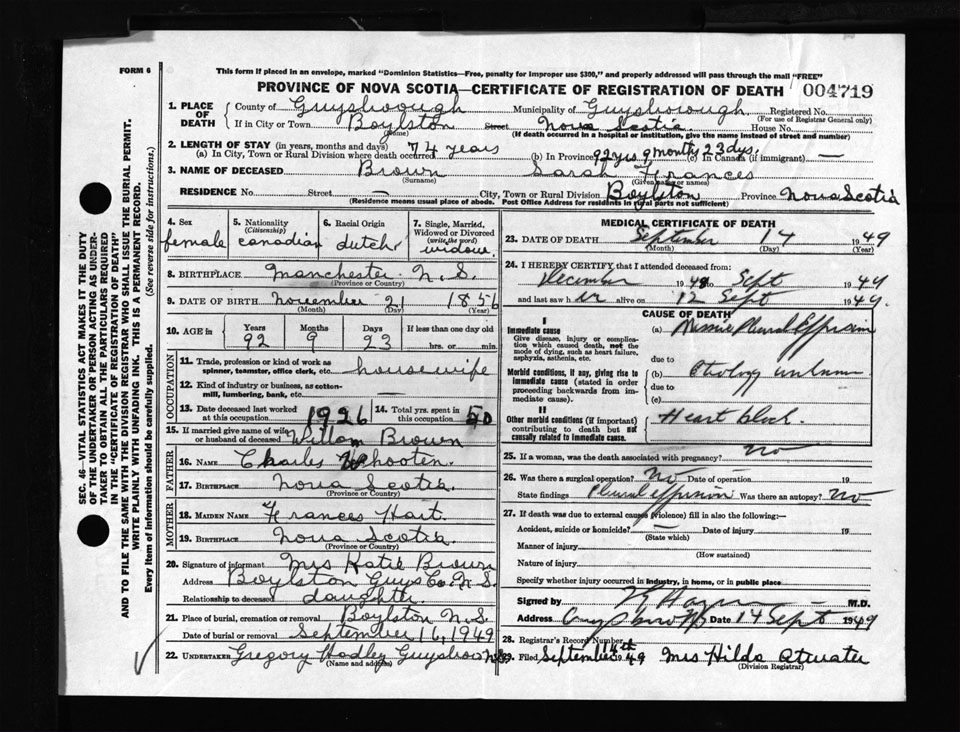 FORM 6
This form if placed in an envelope, marked "Dominion Statistics—Free, penalty for improper use $300," and properly addressed will pass through the mail "FREE"
PROVINCE OF NOVA SCOTIA—CERTIFICATE OF REGISTRATION OF DEATH 004719
1. PLACE OF DEATH { County of Guysborough Municipality of Guysborough Registered No. (For use of Registrar General only)
If in City or Town Boylston (Name) Street Nova Scotia House No.
(If death occurred in a hospital or institution, give the name instead of street and number)
2. LENGTH OF STAY (in years, months and days)
(a) In City, Town or Rural Division where death occurred 74 years (b) In Province 92 yrs 9 months 23 dys. (c) In Canada (if immigrant) —
3. NAME OF DECEASED Brown (Surname) Sarah Frances (Given name or names)
RESIDENCE No. Street — City, Town or Rural Division Boylston Province Nova Scotia
(Residence means usual place of abode. Post Office Address for residents in rural parts not sufficient)
4. Sex female
5. Nationality (Citizenship) canadian
6. Racial Origin dutch
7. Single, Married, Widowed or Divorced (write the word) widow
8. BIRTHPLACE Manchester N.S. (Province or Country)
9. DATE OF BIRTH november (Month) 21 (Day) 1856 (Year)
10. AGE in Years 92 Months 9 Days 23 If less than one day old hrs. or min.
OCCUPATION
11. Trade, profession or kind of work as spinner, teamster, office clerk, etc. housewife
12. Kind of industry or business, as cotton-mill, lumbering, bank, etc.
13. Date deceased last worked at this occupation 1926 14. Total yrs. spent in this occupation 50
15. If married give name of wife or husband of deceased Willam Brown
FATHER
16. NAME Charles Whooten.
17. BIRTHPLACE Nova Scotia (Province or Country)
MOTHER
18. MAIDEN NAME Frances Hart.
19. BIRTHPLACE Nova Scotia (Province or Country)
20. Signature of informant Mrs Katie Brown
Address Boylston Guys Co. N.S.
Relationship to deceased daughter
21. Place of burial, cremation or removal Boylston N.S.
Date of burial or removal September 16, 1949
22. UNDERTAKER Gregory Hadley Guysboro N.S. (Name and address)
MEDICAL CERTIFICATE OF DEATH
23. DATE OF DEATH September (Month) 14 (Day) 1949 (Year)
24. I HEREBY CERTIFY that I attended deceased from:
December 1948 to Sept 1949
and last saw her alive on 12 Sept 1949.
CAUSE OF DEATH
I
Immediate cause (a) Massive Plural Effusion
Give disease, injury or complication which caused death, not the mode of dying, such as heart failure, asphyxia, asthenia, etc.
due to
Morbid conditions, if any, giving rise to immediate cause (stated in order proceeding backwards from immediate cause). (b) Etiology unknown
due to
(c)
II
Other morbid conditions (if important) contributing to death but not causally related to immediate cause. Heart block.
25. If a woman, was the death associated with pregnancy? No
26. Was there a surgical operation? No Date of operation 19
State findings Plural effusion Was there an autopsy? No
27. If death was due to external causes (violence) fill in also the following:—
Accident, suicide or homicide? — (State which) Date of injury 19
Manner of injury (How sustained)
Nature of injury
Specify whether injury occurred in industry, in home, or in public place
Signed by M.D.
Address Guysboro NS Date 14 Sept 1949
28. Registrar's Record Number
29. Filed September 14th 1949 Mrs Hilda Atwater (Division Registrar)
SEC. 46—VITAL STATISTICS ACT MAKES IT THE DUTY
OF THE UNDERTAKER OR PERSON ACTING AS UNDER-
TAKER TO OBTAIN ALL THE PARTICULARS REQUIRED
IN THE "CERTIFICATE OF REGISTRATION OF DEATH"
AND TO FILE THE SAME WITH THE DIVISION REGISTRAR WHO SHALL ISSUE THE BURIAL PERMIT.
WRITE PLAINLY WITH UNFADING INK. THIS IS A PERMANENT RECORD.
Every item of information should be carefully supplied. (See reverse side for instructions.)